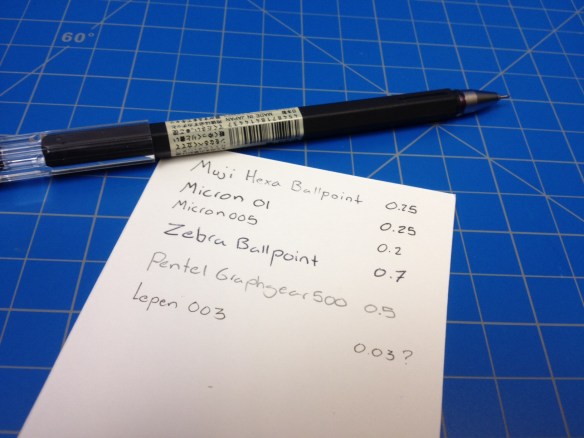 60°
MADE IN JAPAN
Muji Hexa Ballpoint 0.25
Micron 01 0.25
Micron 005 0.2
Zebra Ballpoint 0.7
Pentel Graphgear 500 0.5
Lepen 003 0.03?